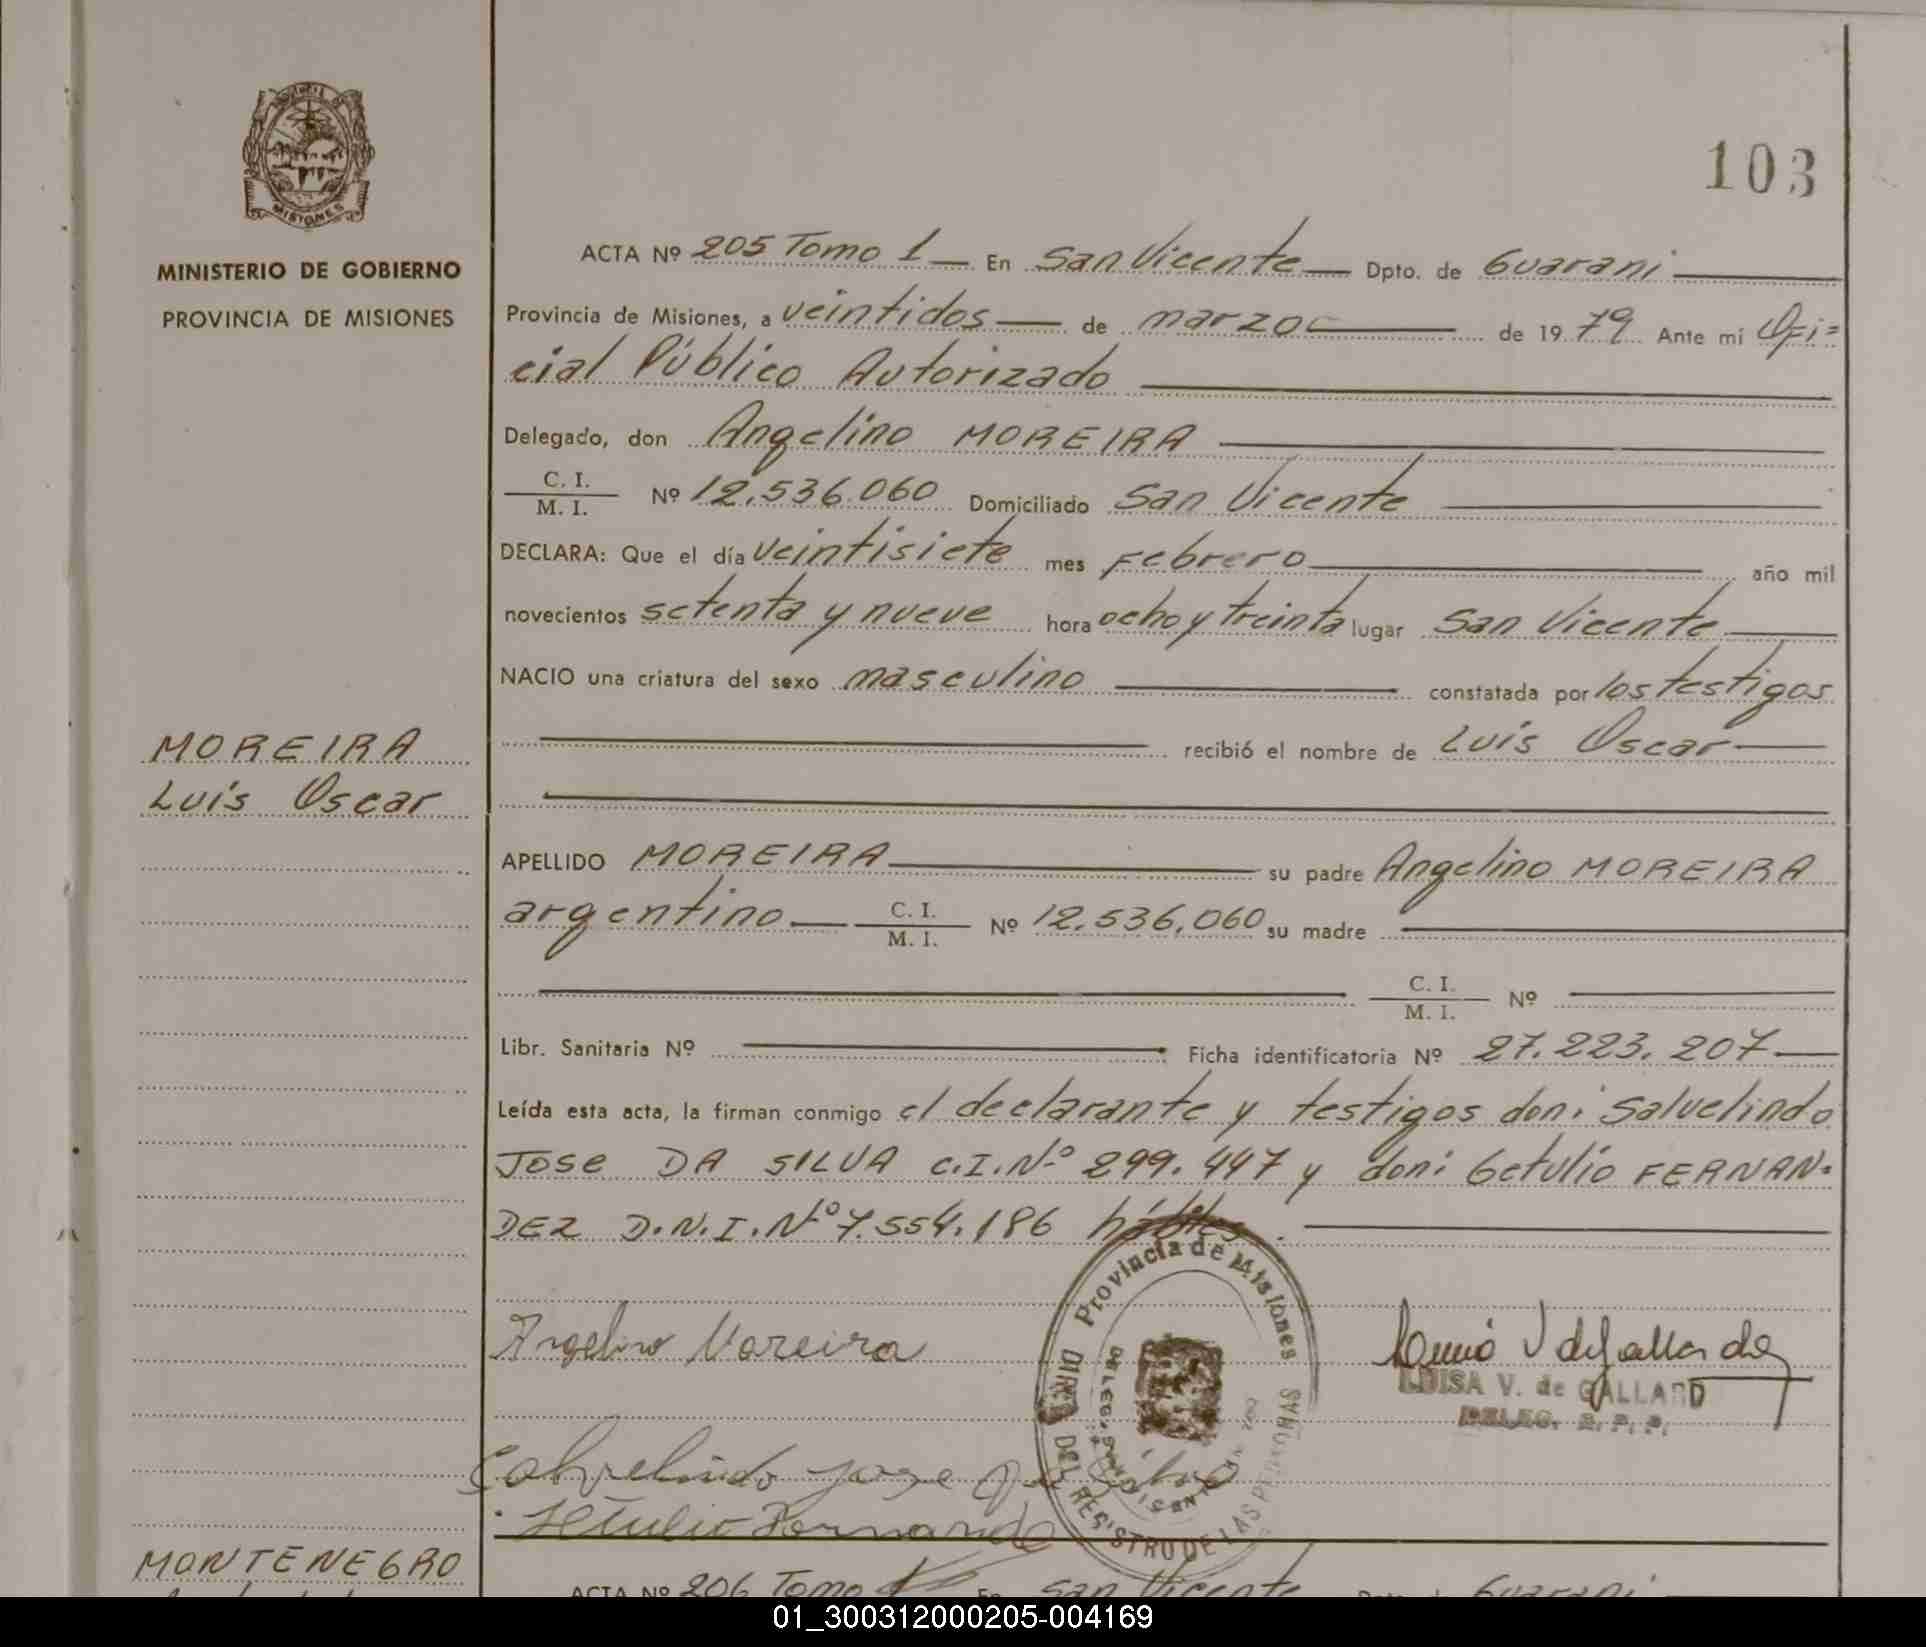 103
MISIONES
MINISTERIO DE GOBIERNO
PROVINCIA DE MISIONES
ACTA Nº 205 Tomo 1 — En San Vicente — Dpto. de Guarani
Provincia de Misiones, a veintidos — de marzo — de 19 79 Ante mi Ofi=
cial Público Autorizado
Delegado, don Angelino MOREIRA
C. I.
M. I.
Nº 12.536.060 Domiciliado San Vicente
DECLARA: Que el día veintisiete mes Febrero año mil
novecientos setenta y nueve hora ocho y treinta lugar San Vicente
NACIO una criatura del sexo masculino constatada por los testigos
recibió el nombre de Luis Oscar
MOREIRA
Luis Oscar
APELLIDO MOREIRA su padre Angelino MOREIRA
argentino — C. I.
M. I.
Nº 12.536.060 su madre
C. I.
M. I.
Nº
Libr. Sanitaria Nº Ficha identificatoria Nº 27.223.207
Leída esta acta, la firman conmigo el declarante y testigos don: Salvelindo
Jose DA SILVA C.I.Nº 299.447 y don: Getulio FERNAN-
DEZ D.N.I.Nº 7.554.186 hábiles.
Angelino Moreira
LUISA V. de GALLARD
DELEG. R. P. P.
Provincia de Misiones
DIREC. DEL REGISTRO DE LAS PERSONAS
MONTENEGRO
ACTA Nº 206 Tomo En San Vicente Guarani
01_300312000205-004169